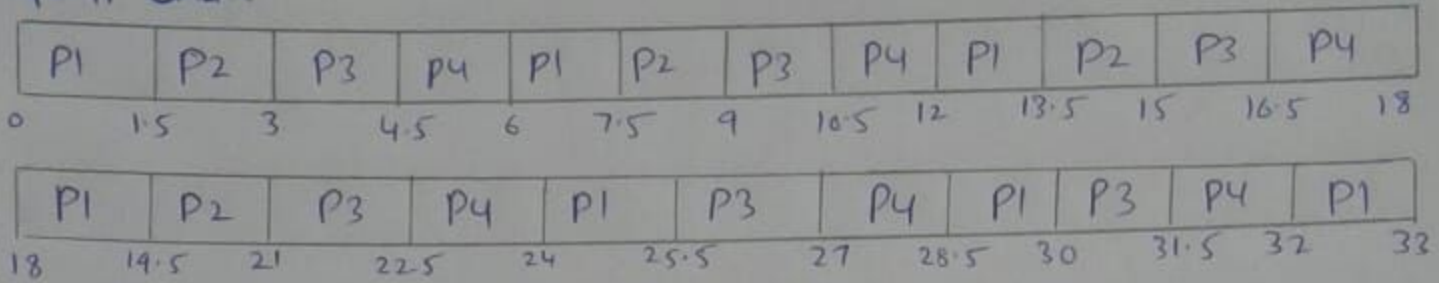 P1 P2 P3 P4 P1 P2 P3 P4 P1 P2 P3 P4
0 1.5 3 4.5 6 7.5 9 10.5 12 13.5 15 16.5 18
P1 P2 P3 P4 P1 P3 P4 P1 P3 P4 P1
18 19.5 21 22.5 24 25.5 27 28.5 30 31.5 32 33